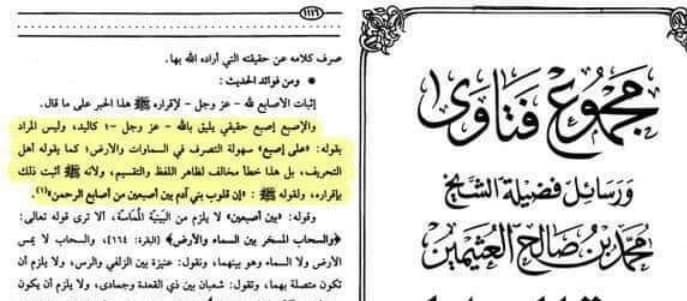 ١١١٦
صرف كلامه عن حقيقته التي أراده الله بها.
• ومن فوائد الحديث:
إثبات الأصابع لله - عز وجل - لإقراره ﷺ هذا الحبر على ما قال.
والإصبع إصبع حقيقي يليق بالله - عز وجل -؛ كاليد، وليس المراد
بقوله: «على إصبع» سهولة التصرف في السماوات والأرض؛ كما يقوله أهل
التحريف، بل هذا خطأ مخالف لظاهر اللفظ والتقسيم، ولأنه ﷺ أثبت ذلك
بإقراره، ولقوله ﷺ: «إن قلوب بني آدم بين أصبعين من أصابع الرحمن»(١).
وقوله: «بين أصبعين» لا يلزم من البينية المماسة، ألا ترى قوله تعالى:
﴿والسحاب المسخر بين السماء والأرض﴾ [البقرة: ١٦٤]، والسحاب لا يمس
الأرض ولا السماء وهو بينهما، ونقول: عنيزة بين الزلفي والرس، ولا يلزم أن
تكون متصلة بهما، وتقول: شعبان بين ذي القعدة وجمادى، ولا يلزم أن يكون
مجموع فتاوى
ورسائل فضيلة الشيخ
محمد بن صالح العثيمين